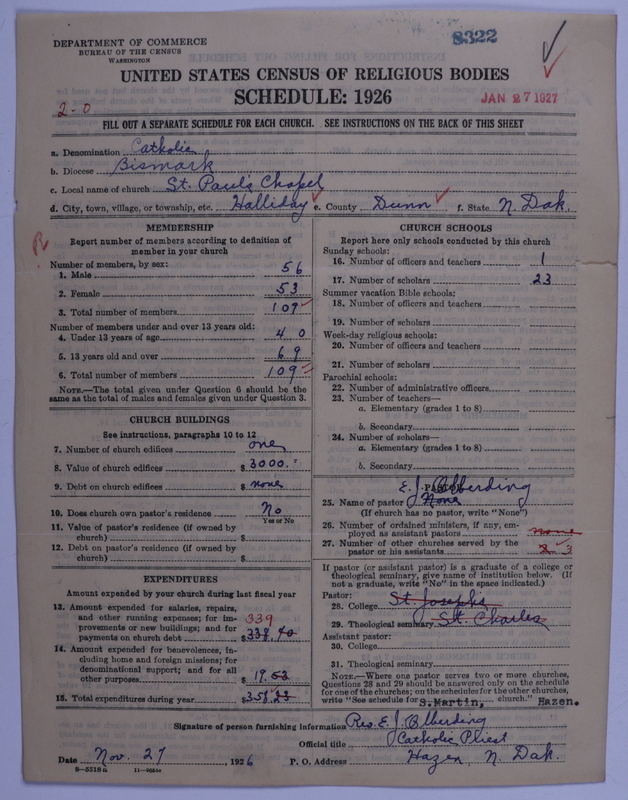 8322
DEPARTMENT OF COMMERCE
BUREAU OF THE CENSUS
WASHINGTON
UNITED STATES CENSUS OF RELIGIOUS BODIES
SCHEDULE: 1926
JAN 27 1927
2-0
FILL OUT A SEPARATE SCHEDULE FOR EACH CHURCH. SEE INSTRUCTIONS ON THE BACK OF THIS SHEET
a. Denomination Catholic
b. Diocese Bismark
c. Local name of church St. Paul's Chapel
d. City, town, village, or township, etc. Halliday e. County Dunn f. State N. Dak.
MEMBERSHIP
Report number of members according to definition of
member in your church
Number of members, by sex:
1. Male 56
2. Female 53
3. Total number of members 109
Number of members under and over 13 years old:
4. Under 13 years of age 40
5. 13 years old and over 69
6. Total number of members 109
NOTE.—The total given under Question 6 should be
same as the total of males and females given under Question 3.
CHURCH BUILDINGS
See instructions, paragraphs 10 to 12
7. Number of church edifices one
8. Value of church edifices $ 3000.
9. Debt on church edifices $ none
10. Does church own pastor's residence No
Yes or No
11. Value of pastor's residence (if owned by
church) $
12. Debt on pastor's residence (if owned by
church) $
EXPENDITURES
Amount expended by your church during last fiscal year
13. Amount expended for salaries, repairs,
and other running expenses; for im-
provements or new buildings; and for
payments on church debt 339
$ 338.70
14. Amount expended for benevolences, in-
cluding home and foreign missions; for
denominational support; and for all
other purposes $ 19.53
15. Total expenditures during year $ 358.23
CHURCH SCHOOLS
Report here only schools conducted by this church
Sunday schools:
16. Number of officers and teachers 1
17. Number of scholars 23
Summer vacation Bible schools:
18. Number of officers and teachers
19. Number of scholars
Week-day religious schools:
20. Number of officers and teachers
21. Number of scholars
Parochial schools:
22. Number of administrative officers
23. Number of teachers—
a. Elementary (grades 1 to 8)
b. Secondary
24. Number of scholars—
a. Elementary (grades 1 to 8)
b. Secondary
PASTOR
E. J. Olberding
25. Name of pastor None
(If church has no pastor, write "None")
26. Number of ordained ministers, if any, em-
ployed as assistant pastors none
27. Number of other churches served by the
pastor or his assistants 2 3
If pastor (or assistant pastor) is a graduate of a college or
theological seminary, give name of institution below. (If
not a graduate, write "No" in the space indicated.)
Pastor:
28. College St. Josephs
29. Theological seminary St. Charles
Assistant pastor:
30. College
31. Theological seminary
NOTE.—Where one pastor serves two or more churches,
Questions 28 and 29 should be answered only on the schedule
for one of the churches; on the schedules for the other churches,
write "See schedule for S.Martin, church." Hazen.
Signature of person furnishing information Rev. E. J. Olberding
Official title Catholic Priest
Date Nov. 27, 1926 P. O. Address Hazen, N. Dak.
8—5518a